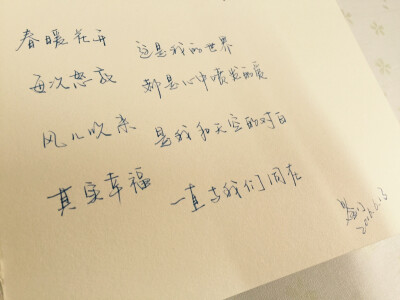 春暖花开 这是我的世界
每次怒放 都是心中喷发的爱
风儿吹来 是我和天空的对白
其实幸福 一直与我们同在